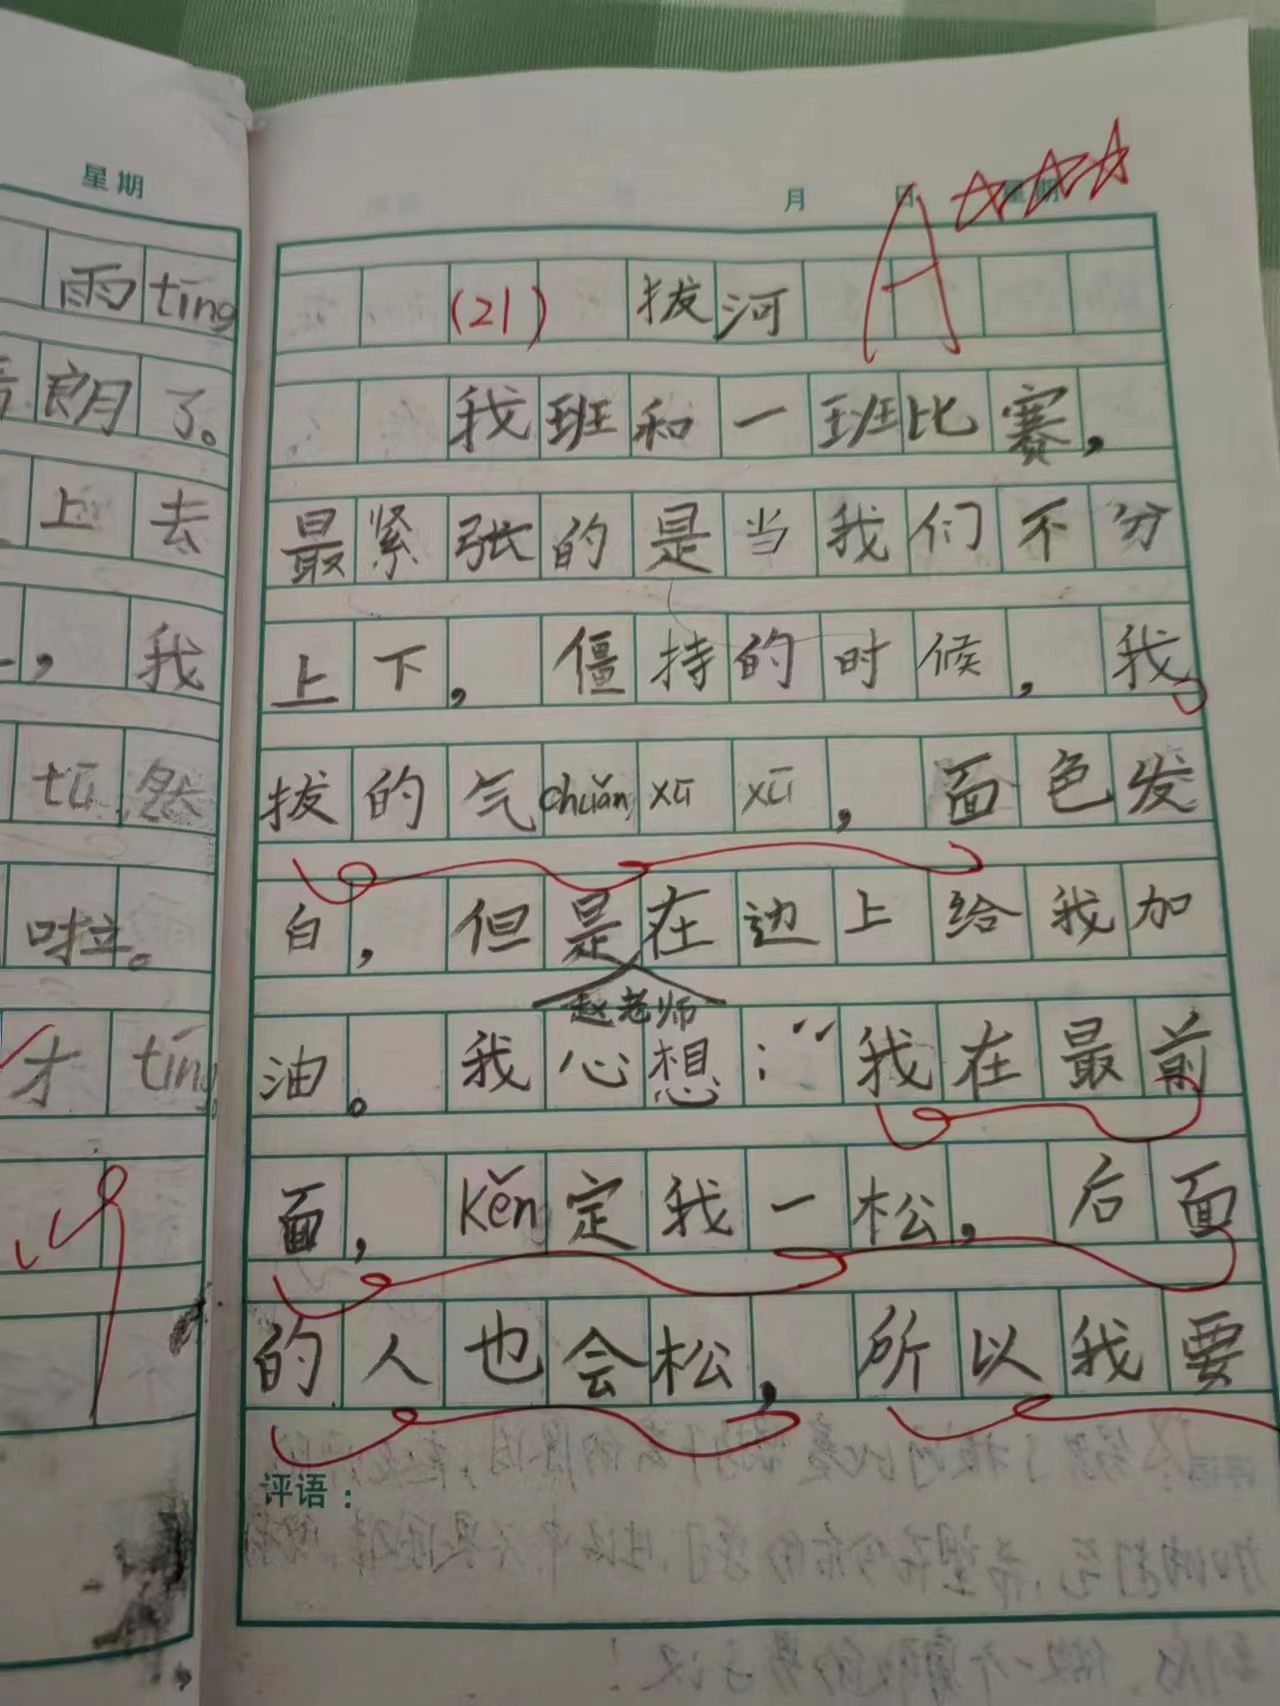 星期
雨tíng
朗了。
上去
，我
tū然
啦。
才tíng
月 日 星期
A
(21) 拔河
我班和一班比赛，
最紧张的是当我们不分
上下，僵持的时候，我
拔的气chuǎn xū xū，面色发
白，但是在边上给我加
赵老师
油。我心想：“我在最前
面，kěn定我一松，后面
的人也会松，所以我要
评语：